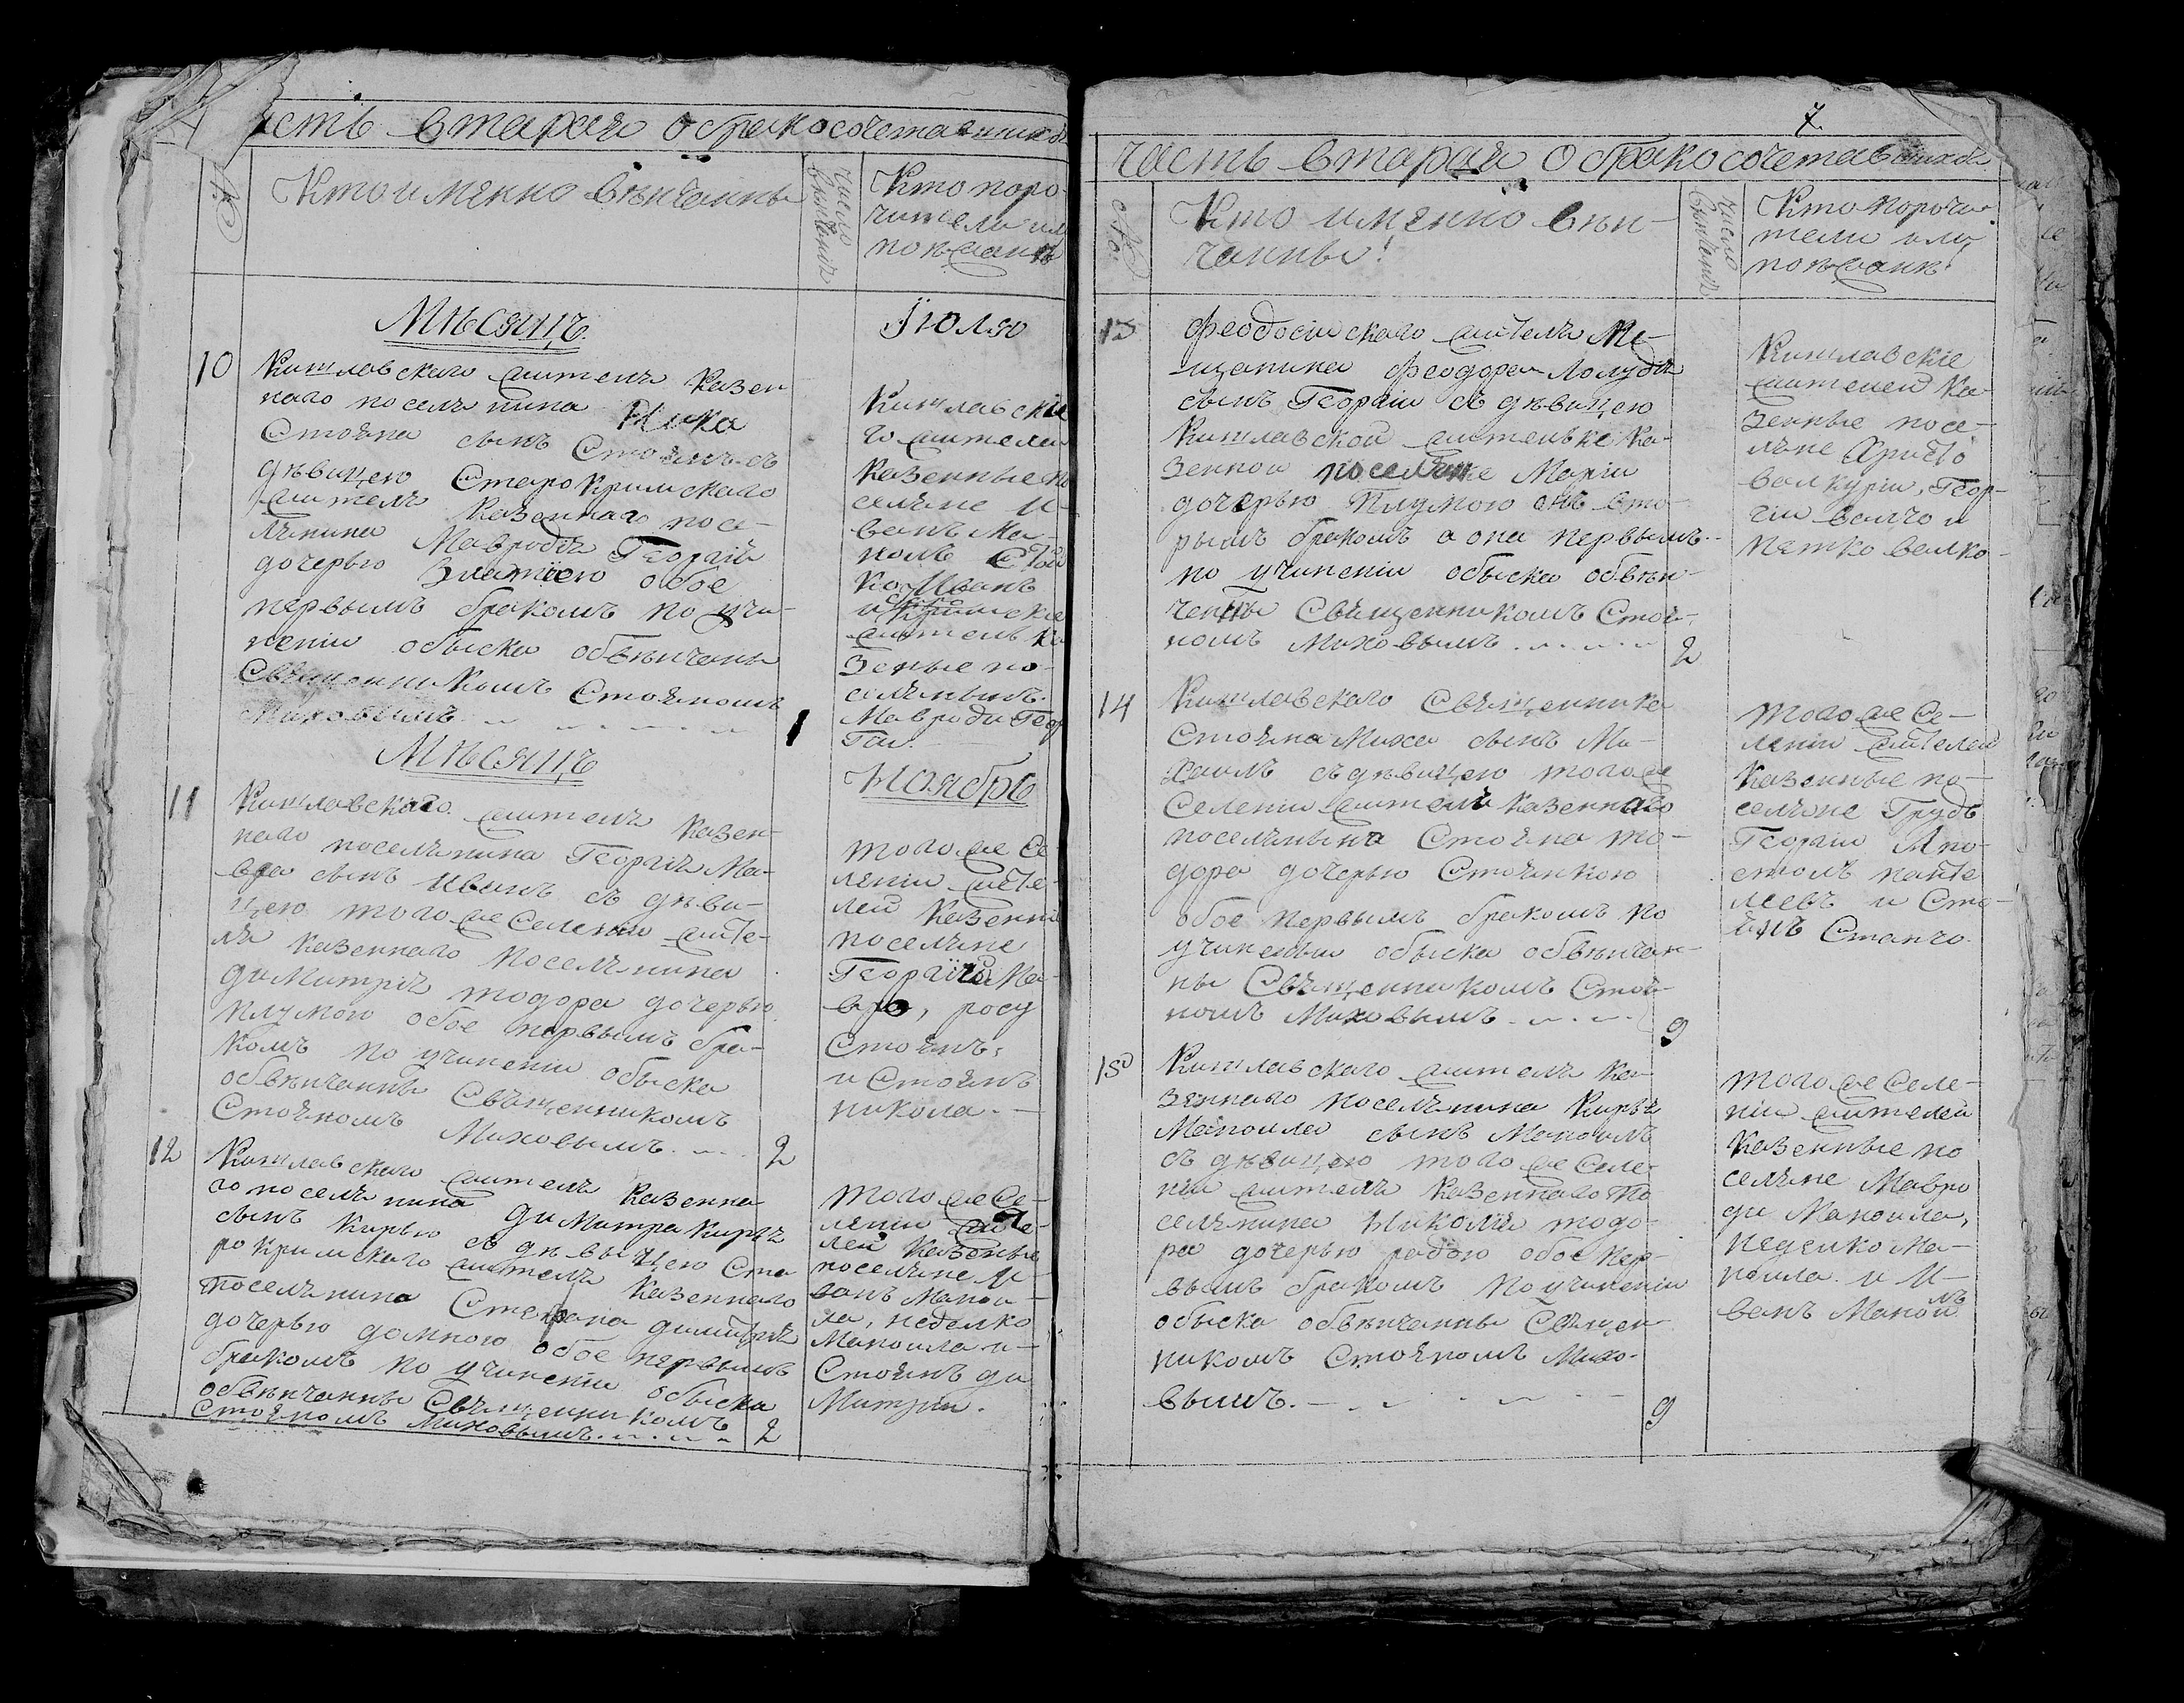 сть втарая о бракосочетавшихся
№
Кто именно венчанны
число венчанiя
Кто пору
чители или
поезжане
Мѣсяцъ
Iюлю
10
Кишлавскаго жителя казен
наго поселянина Ника
Стояна сынъ Стоянъ съ
дѣвицею Старокримскаго
жителя казеннаго посе-
лянина Мавродiя Георгiя
дочерью Златiею обое
первымъ бракомъ по учи-
ненiи обыска обвѣнчаны
Священникымъ Стояномъ
Миховымъ
1
Кишлавскiе
го жители
казенные по
селяне И-
ванъ Ма-
ноль Стои
ко Иванъ
и кримские
жители ка
зеные по-
селяныиъ
Мавроди Геор
гiи.
Мѣсяцъ
Ноябрь
11
Кишлавскаго жителя казен-
наго поселянина Георгiя Ма-
вра сынъ Иванъ съ дѣви-
цею того же Селенiи жите-
ля казеннаго поселянина
Димитрiя тодора дочерью
плумою обое первымъ бра-
комъ по учиненiи обыска
обвѣнчанны Священникомъ
Стояномъ Миховымъ
2
того же Се-
ленiи жите-
леи казенни
поселяне
Георгiи Ма-
вро, росу
Стоянъ,
и Стоянъ
никола.
12
Кишлавскаго жителя казенна
го поселянина Димитра Кирѣя
сынъ Кирѣю съ дѣвыцею Ста
рокримскаго жителя казеннаго
поселянина Стефана димитрiя
дочерью домною обое первымъ
бракомъ по учиненiи обыска
обвѣнчанны Священникомъ
Стояномъ Миховымъ
2
того же Се-
ленiи жите-
леи казенные
поселяне И-
ванъ Манои-
ла, неделко
Маноила и
Стоянъ ди
Митрiи.
7.
часть втарая о бракосочетавшихся.
№
Кто именно вен-
чанны!
число венчанiя
Кто поручи-
тели или
поезжанѣ!
13
Феодосiискаго жителя Ме-
щанина Феодора Лолуди
сынъ Георгiи съ дѣвицею
Кишлавской жителькѣ ка-
зеннои поселянке Марiи
дочерью плумою онъ вто-
рымъ бракомъ а она первымъ
по учиненiи обыска обвѣн-
ченны Священникомъ Стоя-
номъ Миховымъ
2
Кишлавскiе
жителеи ка-
зенные посе-
ляне Христо
валкурiи, Геор-
гiи валчо и
петко валко-
14
Кишлавскаго Священника
Стояна Миха сынъ Ми-
хаилъ съ дѣвицею того же
Селенiи жителя казеннаго
поселяныина Стояна то-
дора дочерью Стоянкою
обое первымъ бракомъ по
учиненiи обыска обвѣнчан-
ны Священникомъ Стоя-
номъ Миховымъ
2
того же Се-
ленiи жителеи
казенные по-
селяне Грудъ
Георгiи Апо-
столъ панте
леевъ и Сто-
янъ Станчо.
15
Кишлавскаго жителя ка-
зеннаго поселянина Кирѣя
Маноила сынъ Маноилъ
съ дѣвицею того же Селе-
нiи жителя казеннаго по
селянина Николая тодо-
ра дочерью радою обое пер-
вымъ бракомъ по учиненiи
обыска обвѣнчанны Священ-
никомъ Стояномъ Михо-
вымъ.
2
того же Селе-
нiи жителеи
казенные по
селяне Мавро
ди Маноила,
неделко Ма-
ноила и И-
ванъ Маноилъ